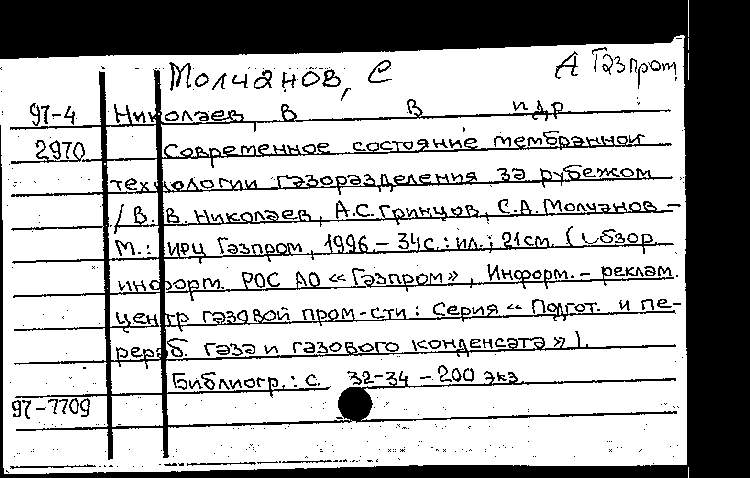 Молчанов, С А Газпром
97-4 Николаев, В В и др
2970 Современное состояние мембранной
технологии газоразделения за рубежом
/ В. В. Николаев, А.С. Гринцов, С.А. Молчанов –
М.: ИРЦ Газпром, 1996. – 34с.: ил.; 21см. (Обзор.
информ. РОС АО «Газпром», Информ. – реклам.
центр газовой пром-сти: Серия « Подгот. и пе-
рераб. газа и газового конденсата»).
Библиогр.: с. 32-34 – 200 экз
97-7709